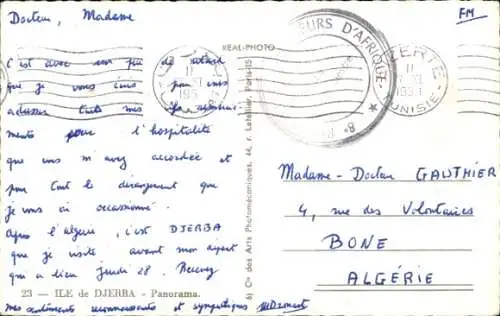 Docteur, Madame
FM
REAL-PHOTO
C'est avec un peu de retard
que je vous écris pour vous
adresser tous mes
ments pour l'hospitalité
que vous m'avez accordée et
pour tout le dérangement que
je vous ai occasionné.
Après l'Algérie, c'est DJERBA
que je visite avant mon départ
qui a lieu jeudi 28. Recevez
23 — ILE de DJERBA - Panorama.
mes sentiments reconnaissants et sympathiques
6) Cie des Arts Photomécaniques, 44, r. Letellier, Paris-15
EURS D'AFRIQUE
BIZERTE
TUNISIE
Madame - Docteur GAUTHIER
4, rue des Volontaires
BONE
ALGÉRIE